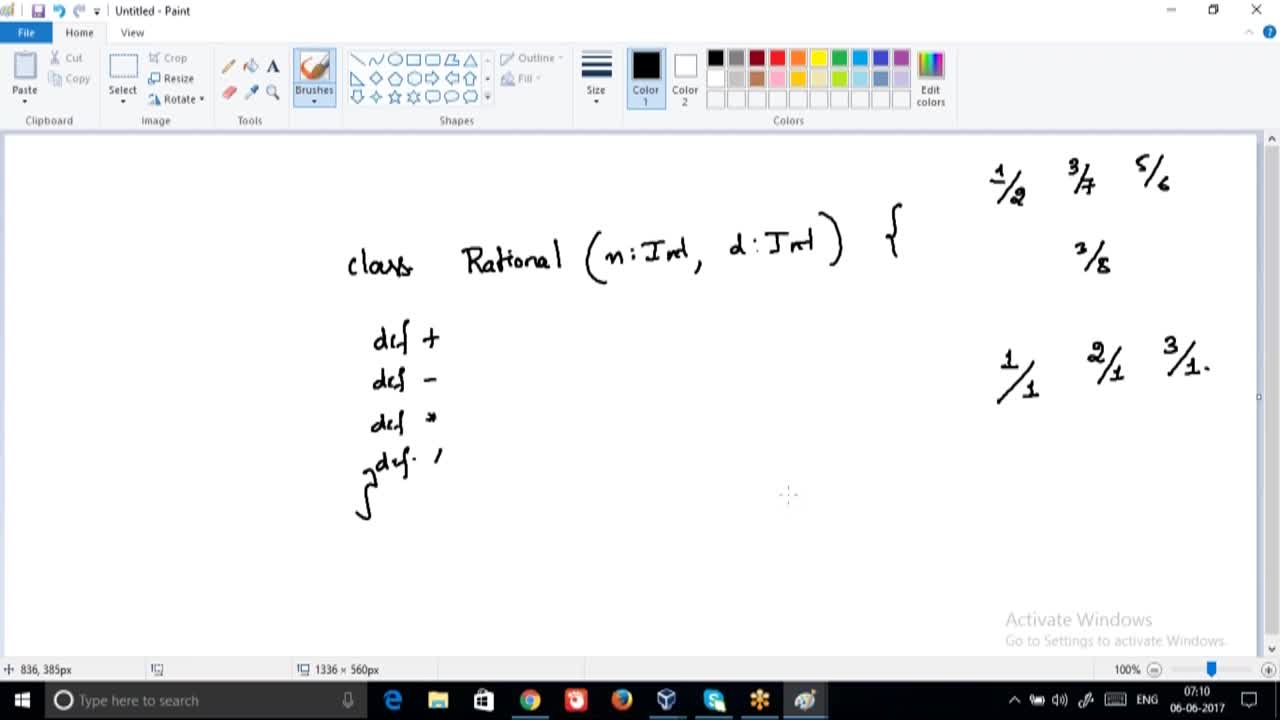 Untitled - Paint
File Home View
Paste Cut Copy Clipboard
Select Crop Resize Rotate Image
Tools
Brushes
Outline Fill Shapes
Size
Color 1 Color 2 Edit colors Colors
1/2 3/7 5/6
class Rational (n:Int, d:Int) {
3/8
def +
1/1 2/1 3/1.
def -
def *
def. /
}
Activate Windows
Go to Settings to activate Windows.
836, 385px 1336 × 560px 100%
Type here to search ENG 07:10
06-06-2017